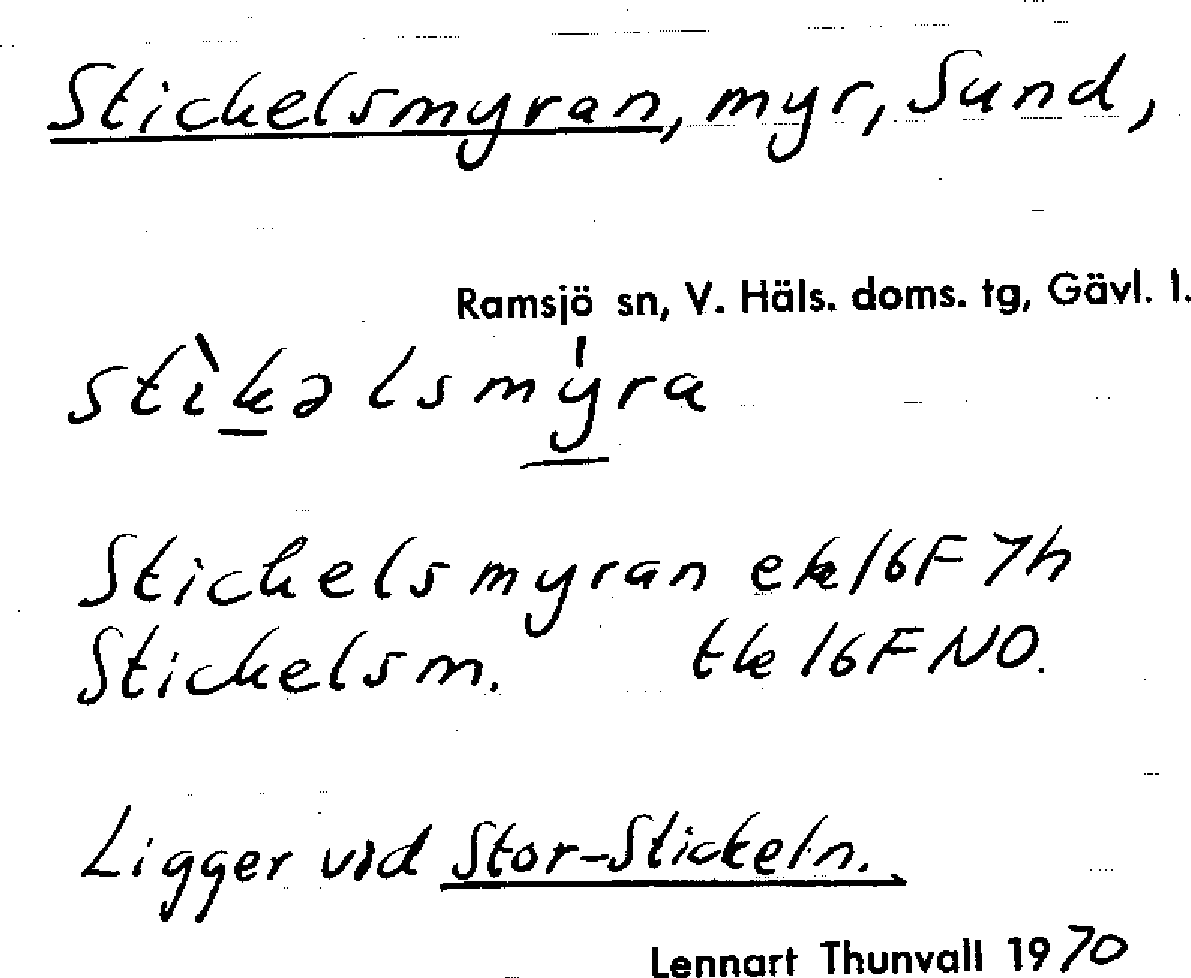 Stickelsmyran, myr, Sund,
Ramsjö sn, V. Häls. doms. tg, Gävl. l.
stìk̲əlsmý̲ra
Stickelsmyran ek 16F 7h
Stickelsm. tk 16F NO.
Ligger vid Stor-Stickeln.
Lennart Thunvall 1970